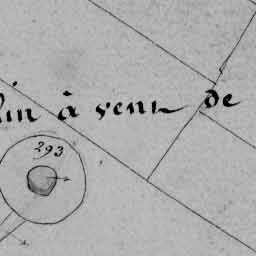 lin à vent de
293